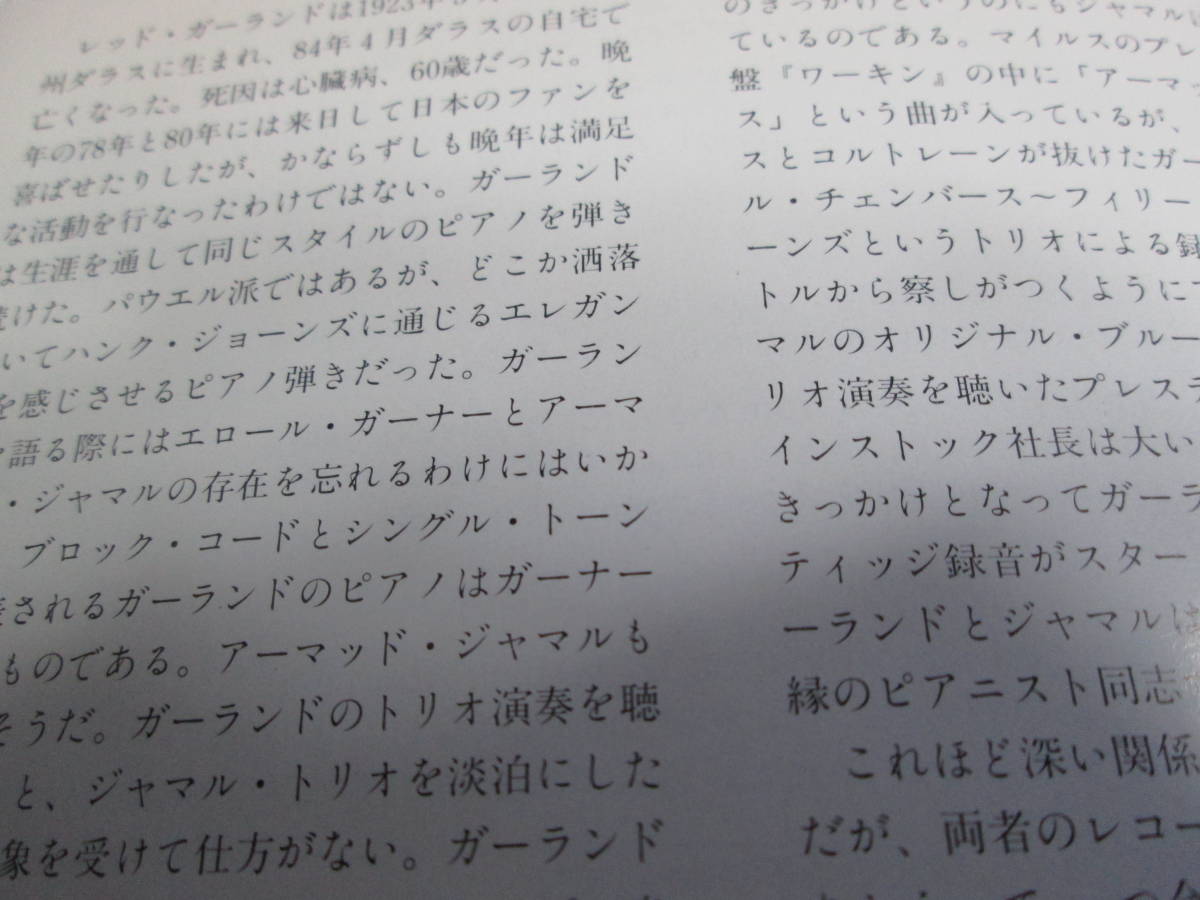 レッド・ガーランドは1923年5
州ダラスに生まれ、84年4月ダラスの自宅で
亡くなった。死因は心臓病、60歳だった。晩
年の78年と80年には来日して日本のファンを
喜ばせたりしたが、かならずしも晩年は満足
な活動を行なったわけではない。ガーランド
は生涯を通して同じスタイルのピアノを弾き
続けた。パウエル派ではあるが、どこか洒落
いてハンク・ジョーンズに通じるエレガン
を感じさせるピアノ弾きだった。ガーラン
語る際にはエロール・ガーナーとアーマ
・ジャマルの存在を忘れるわけにはいか
ブロック・コードとシングル・トーン
されるガーランドのピアノはガーナー
ものである。アーマッド・ジャマルも
そうだ。ガーランドのトリオ演奏を聴
と、ジャマル・トリオを淡泊にした
象を受けて仕方がない。ガーランド
のきっかけというのにもジャマル
ているのである。マイルスのプレ
盤『ワーキン』の中に「アーマッ
ス」という曲が入っているが、
スとコルトレーンが抜けたガー
ル・チェンバース〜フィリー
ーンズというトリオによる録
トルから察しがつくように
マルのオリジナル・ブルー
リオ演奏を聴いたプレステ
インストック社長は大い
きっかけとなってガーラ
ティッジ録音がスター
ーランドとジャマルは
縁のピアニスト同志
これほど深い関係
だが、両者のレコー